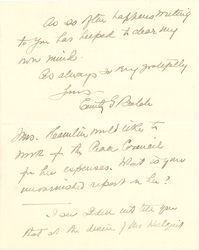 As so often happens writing
to you has helped to clear my
own mind.
As always very gratefully
Yours
Emily G Balch
Mrs. Hamlin would like to
work for the Peace Council
for her expenses. What is your
unvarnished report on her?
I am glad
that at the desire of